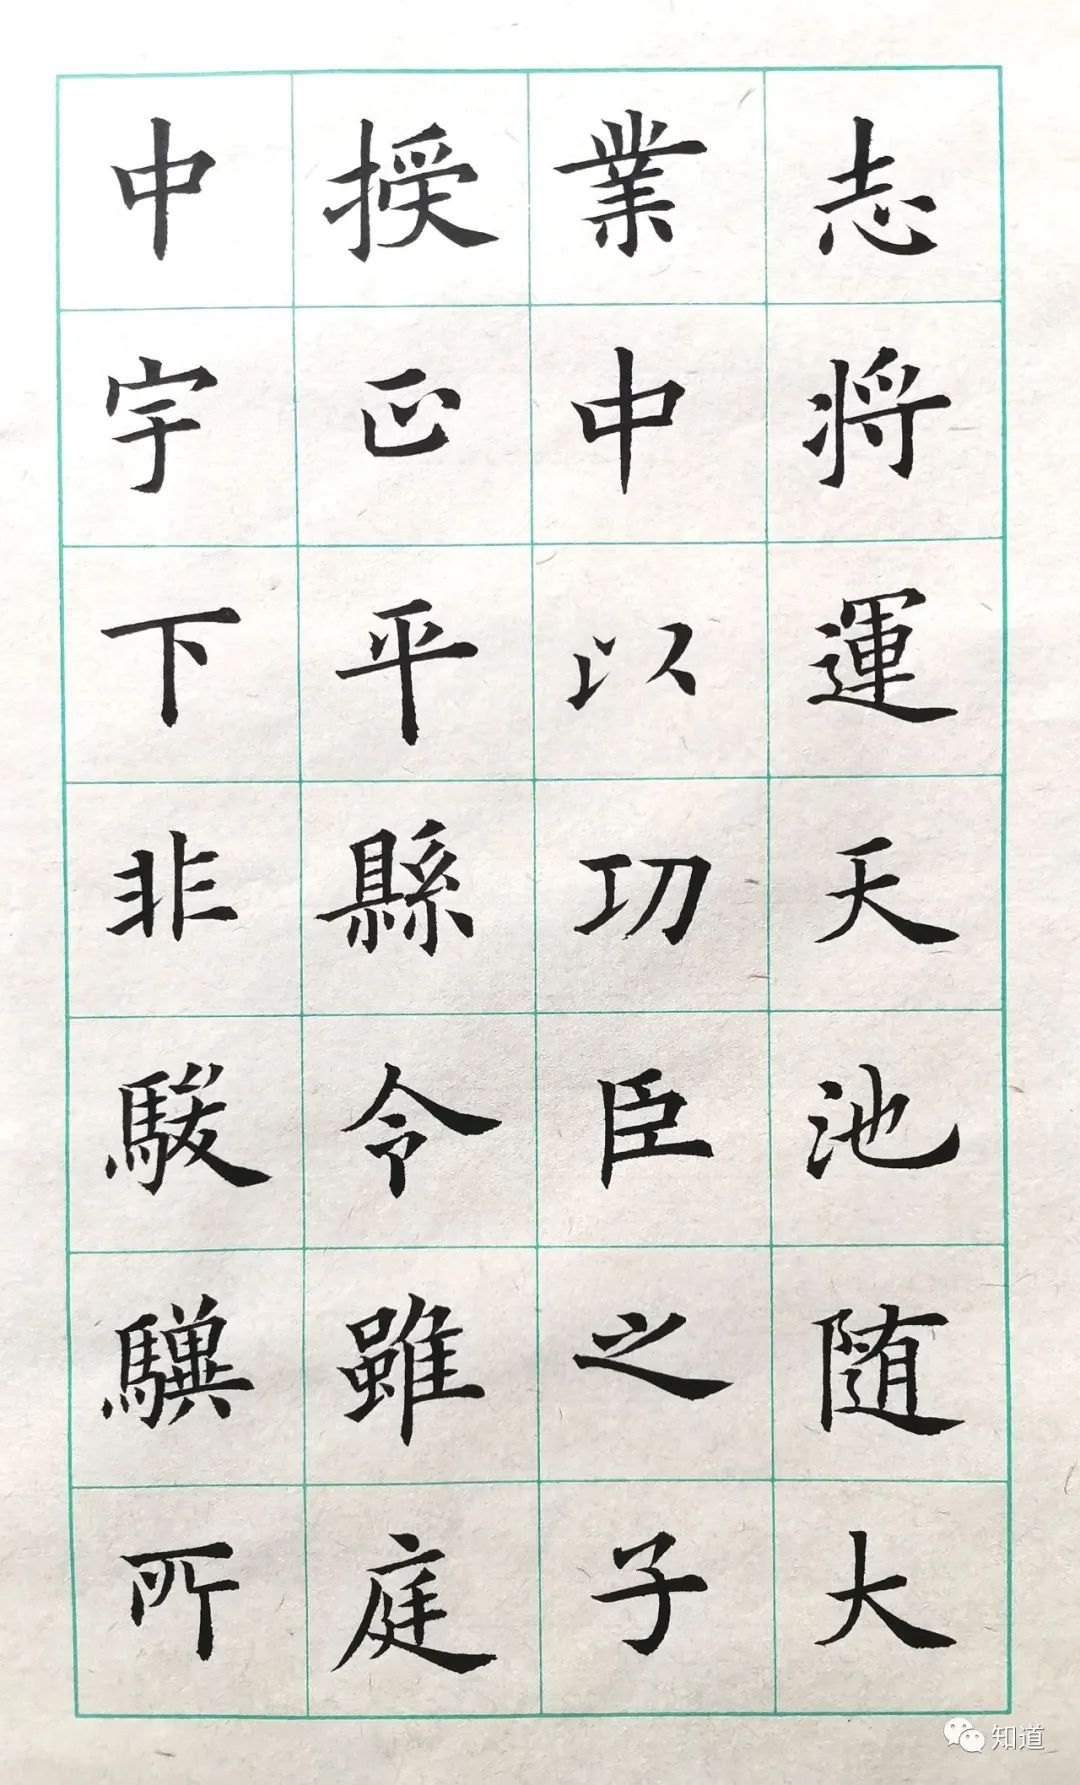 志将運天池随大
業中以功臣之子
授正平縣令雖庭
中宇下非駿驥所
知道